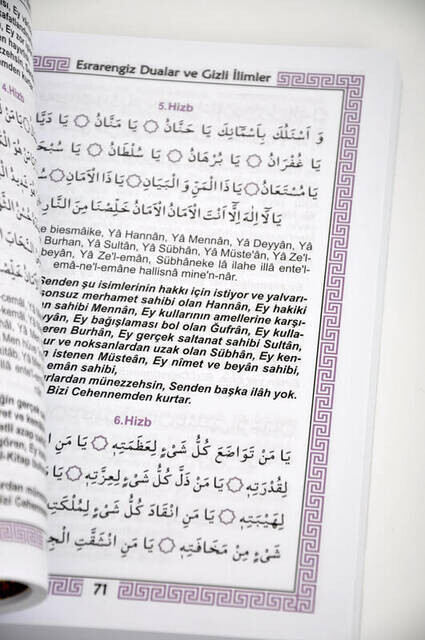 Esrarengiz Dualar ve Gizli İlimler
5.Hizb
وَ اَسْئَلُكَ بِاَسْمَائِكَ يَا حَنَّانُ يَا مَنَّانُ يَا دَيَّا
يَا غُفْرَانُ يَا بُرْهَانُ يَا سُلْطَانُ يَا سُبْحَ
يَا مُسْتَعَانُ يَا ذَا الْمَنِّ وَ الْبَيَانِ يَا ذَا الْاَمَانِ
يَا لَا اِلٰهَ اِلَّا اَنْتَ الْاَمَانُ الْاَمَانُ خَلِّصْنَا مِنَ النَّارِ
e biesmâike, Yâ Hannân, Yâ Mennân, Yâ Deyyân, Yâ
Burhan, Yâ Sultân, Yâ Sübhân, Yâ Müste'ân, Yâ Ze'l-
beyân, Yâ Ze'l-emân, Sübhâneke lâ ilahe illâ ente'l-
emâ-ne'l-emâne hallisnâ mine'n-nâr.
Senden şu isimlerinin hakkı için istiyor ve yalvarı-
sonsuz merhamet sahibi olan Hannân, Ey hakiki
n sahibi Mennân, Ey kullarının amellerine karşı-
yyân, Ey bağışlaması bol olan Ğufrân, Ey kulla-
eren Burhân, Ey gerçek saltanat sahibi Sultân,
ur ve noksanlardan uzak olan Sübhân, Ey ken-
n istenen Müsteân, Ey nîmet ve beyân sahibi,
emân sahibi,
rlardan münezzehsin, Senden başka ilâh yok.
Bizi Cehennemden kurtar.
6.Hizb
يَا مَنْ تَوَاضَعَ كُلُّ شَيْءٍ لِعَظَمَتِهِ يَا مَنِ
لِقُدْرَتِهِ يَا مَنْ ذَلَّ كُلُّ شَيْءٍ لِعِزَّتِهِ يَا
لِهَيْبَتِهِ يَا مَنِ انْقَادَ كُلُّ شَيْءٍ لِمُلْكَتِهِ
شَيْءٍ مِنْ مَخَافَتِهِ يَا مَنِ انْشَقَّتِ الْجِ
71